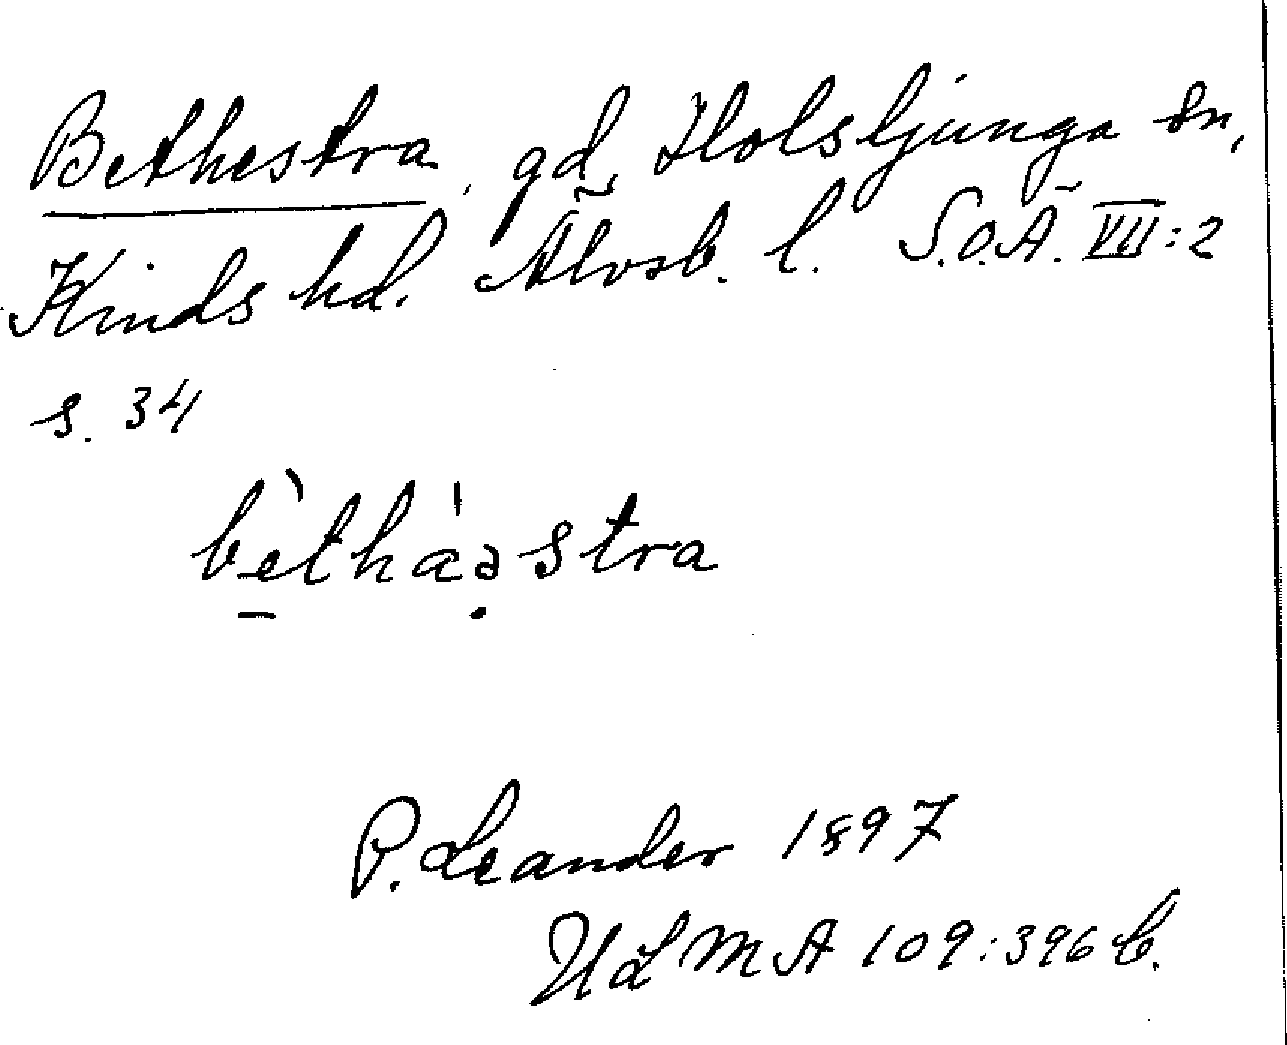 Bethestra, gd, Holsljunga sn,
Kinds hd. Älvsb. l. S.O.Ä. VII:2
s. 34
bèthá,əstra
P. Leander 1897
ULMA 109:396 b.